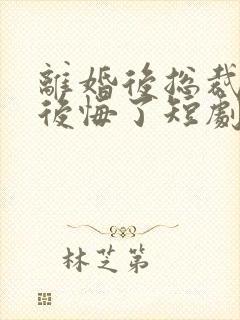 離婚後總裁
後悔了短劇
林芝第